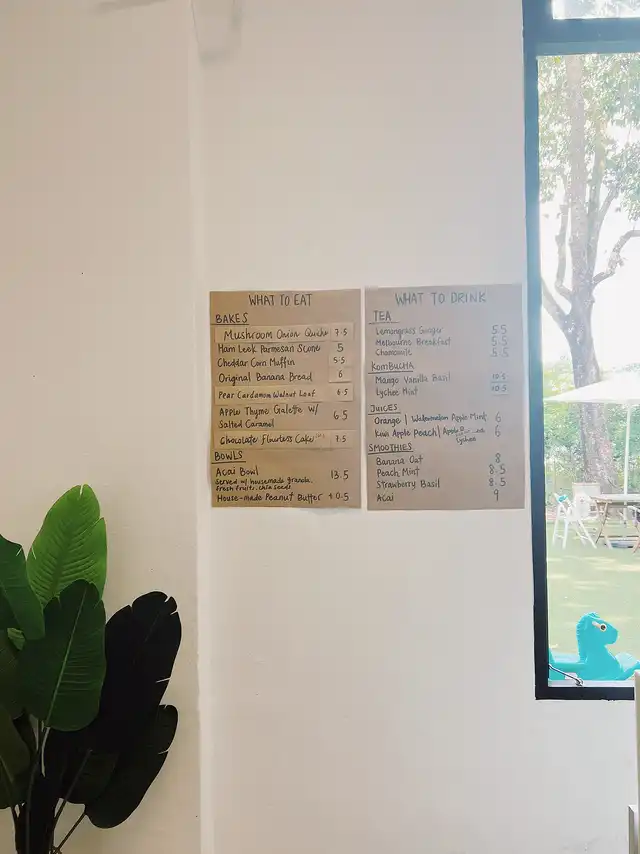 WHAT TO EAT
BAKES
Mushroom Onion Quiche 7.5
Ham Leek Parmesan Scone 5
Cheddar Corn Muffin 5.5
Original Banana Bread 6
Pear Cardamom Walnut Loaf 6.5
Apple Thyme Galette w/ 6.5
Salted Caramel
Chocolate Flourless Cake 7.5
BOWLS
Acai Bowl 13.5
Served w/ housemade granola,
fresh fruits, chia seeds
House-made Peanut Butter +0.5
WHAT TO DRINK
TEA
Lemongrass Ginger 5.5
Melbourne Breakfast 5.5
Chamomile 5.5
KOMBUCHA
Mango Vanilla Basil 10.5
Lychee Mint 10.5
JUICES
Orange | Watermelon Apple Mint 6
Kiwi Apple Peach | Apple 6
Lychee
SMOOTHIES
Banana Oat 8
Peach Mint 8.5
Strawberry Basil 8.5
Acai 9